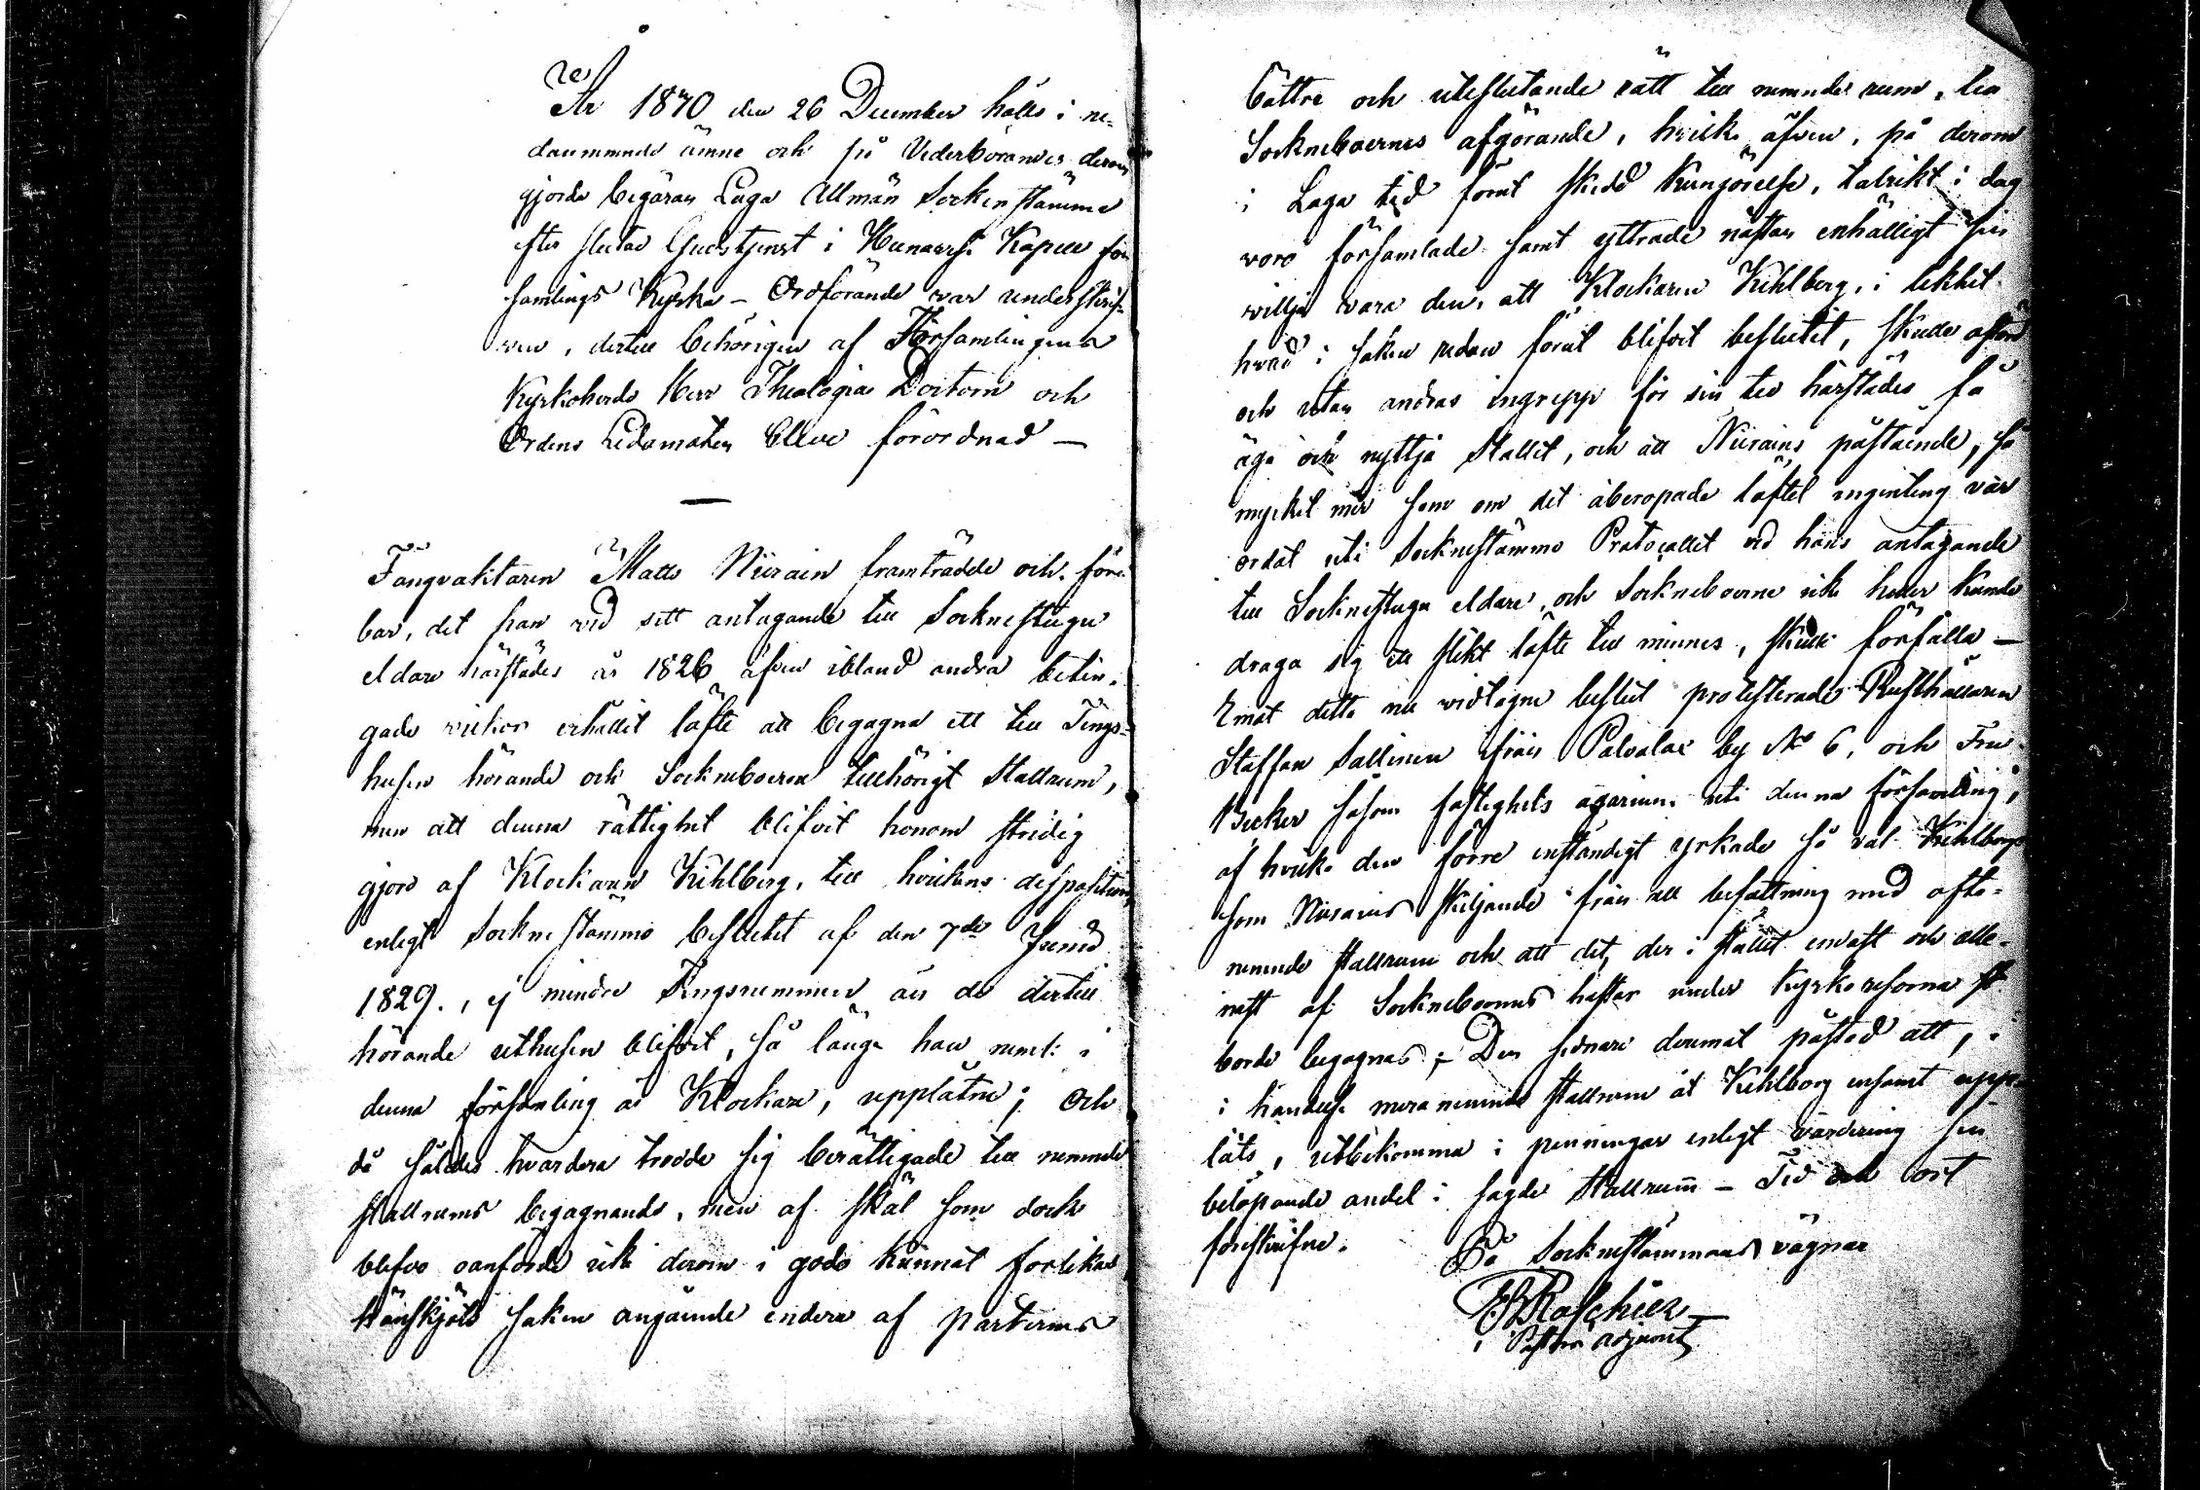 År 1870 den 26 December hölls i ne-
dannemnde ämne och på Vederbörandes derom
gjorda begäran Laga Allmän Sockenstämma
efter slutad Gudstjenst i Kapell för-
samlings Kyrka – Ordförande var underskrif-
ven, dertill behörigen af Församlingens
Kyrkoherde Herr Theologiæ Doctorn och
Ordens Ledamoten förordnad –
Fångvaktaren Matts Niirain framträdde och före-
bar, det han vid sitt antagande till Socknestugu
eldare härstädes år 1826 äfven ibland andra betin-
gade vilkor erhållit löfte att begagna ett till Tings-
husen hörande och Sockneboerne tillhörigt Stallrum,
men att denna rättighet blifvit honom stridig
gjord af Klockaren Kihlberg, till hvilkens disposition,
enligt Sockne stämmo beslutet af den 7de Junii
1829., ej mindre Tingsrummen än de dertill
hörande uthusen blifvit, så länge han neml: i
denna församling är Klockare, upplåtne; Och
då således hvardera trodde sig berättigade till nemnde
stallrums begagnande, men af skäl som dock
blefvo oanförde icke derom i godo kunnat förlikas,
hänskjöts saken angående endera af parternes
bättre och uteslutande rätt till nemnde rum, till
Sockneboernes afgörande, hvilke äfven, på derom
i Laga tid förut skedd Kungörelse, talrikt i dag
voro församlade samt yttrade nästan enhälligt sin
vilja vara den, att Klockaren Kihlberg, i likhet
hvad i saken redan förut blifvit beslutit, skulle
och utan andras ingrepp för sin tid härstädes få
äga och nyttja Stallet, och att Niirains påstående, så
mycket mer som om det åberopade löftet ingenting var
ordat uti Sockne stämmo Protocollet vid hans antagande
till Socknestugu eldare, och Sockneboerne icke heller kunde
draga sig ett slikt löfte till minnes, skulle förfalla –
Emot detta nu vidtagne beslut protesterade Rusthållaren
Staffan Sallinen ifrån Palvalax by No 6, och Fru
såsom fastighets ägarinna uti denna församling,
af hvilka den förre enständigt yrkade så väl Kihlbergs
som Niirains skiljande ifrån all befattning med ofta-
nemnde stallrum och att det, der i stället endast och alle-
nast af Sockneboernes hästar under Kyrkoresorna
borde begagnas; – Den sednare deremot påstod att, i
i händelse mera nemnde stallrum åt Kihlberg ensamt upp-
låts, utbekomma i penningar enligt värdering sin
belöpande andel i sagde Stallrum – Tid och ort
föreskrifne.
På Socknestämmans vägnar
Roschier
Pastors adjunct